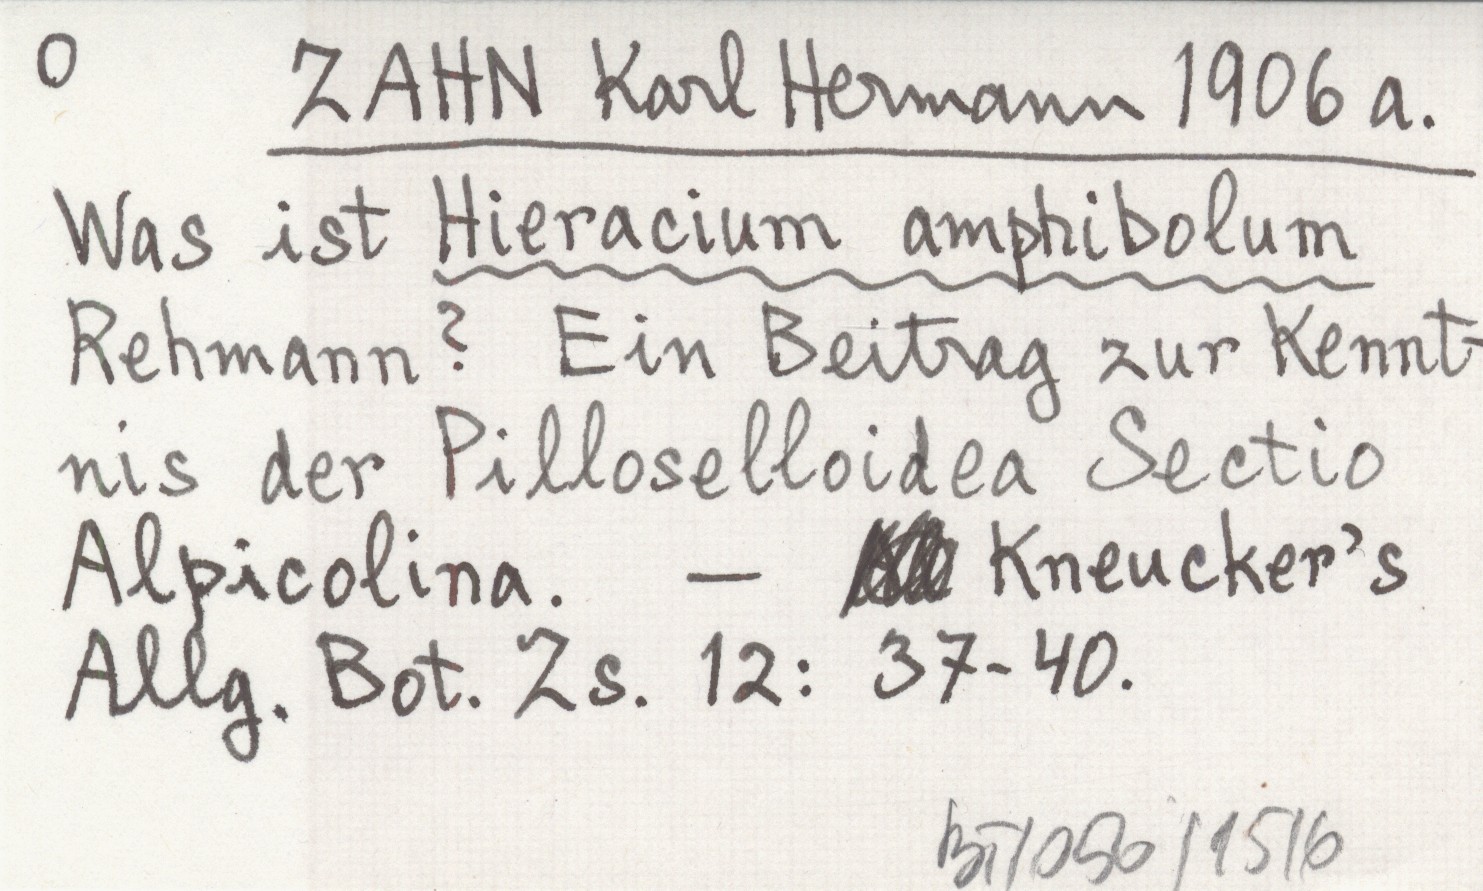 O ZAHN Karl Hermann 1906 a.
Was ist Hieracium amphibolum
Rehmann? Ein Beitrag zur Kennt-
nis der Pilloselloidea Sectio
Alpicolina. — Kneucker's
Allg. Bot. Zs. 12: 37-40.